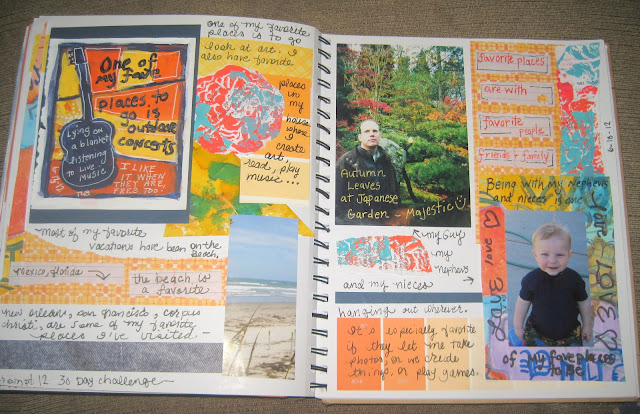 One of
my Fave
places to
go is
outdoor
concerts
Lying on
a blanket
listening
to Live
Music
I LIKE
IT WHEN
THEY ARE
FREE TOO.
6.19.12
one of my favorite
places is to go
look at art. I
also have favorite
places
in my
house
where I
create
art,
read, play
music...
most of my favorite
vacations have been on the
beach.
Mexico, Florida
the beach is
a favorite
new orleans, san francisco, corpus
christi, are some of my favorite
places I've visited.
prompt 12 30 Day challenge
Autumn
Leaves
at Japanese
Garden - Majestic
my Guy
my
nephews
and my nieces
hanging out wherever.
It's especially favorite
if they let me take
photos, or we create
things, or play games.
favorite places
are with
favorite
people
friends + family
6.19.12
Being with my Nephews
and nieces is one
of my fave places
to Be
Love
Love